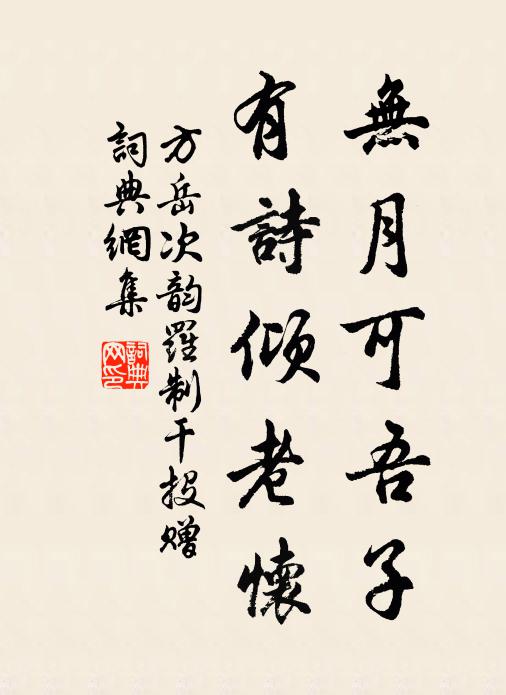 無月可吾子
有詩傾老懷
方岳次韵羅制干投贈
詞典網集
詞典网印